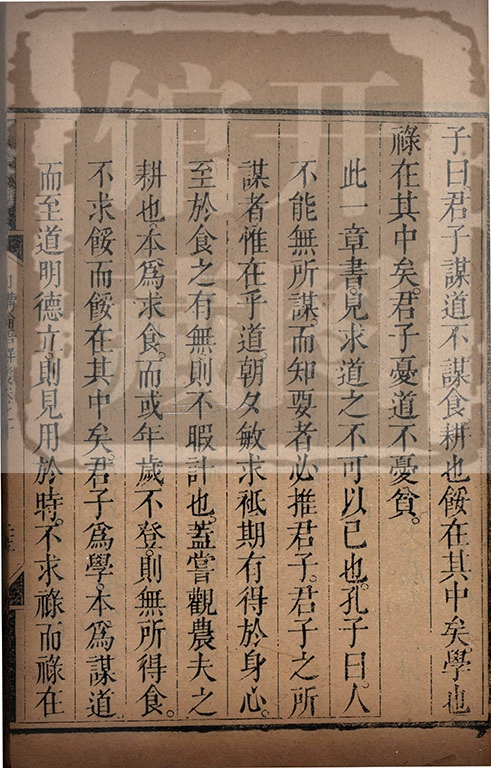 子曰。君子謀道不謀食耕也餒在其中矣。學也
祿在其中矣。君子憂道不憂貧。
此一章書。見求道之不可以已也。孔子曰。人
不能無所謀。而知要者必推君子。君子之所
謀者惟在乎道。朝夕敏求祗期有得於身心。
至於食之有無。則不暇計也。蓋嘗觀農夫之
耕也。本為求食。而或年歲不登。則無所得食。
不求餒而餒在其中矣。君子為學。本為謀道
而至道明德立。則見用於時。不求祿而祿在